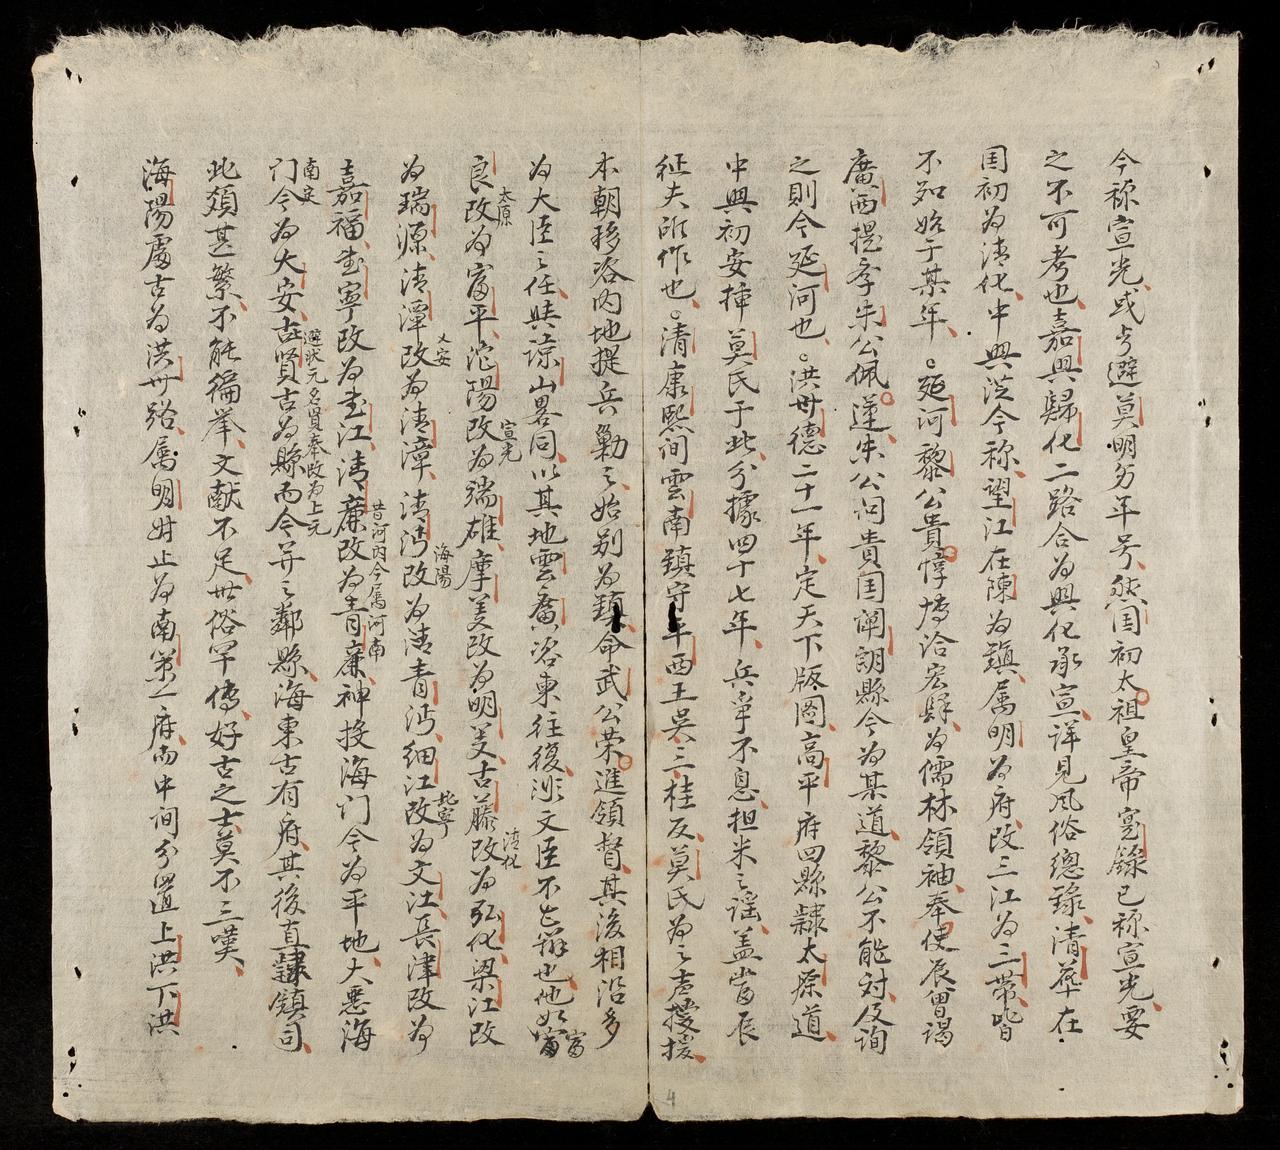 今称宣光或曰避莫明宗年号然囯初太祖皇帝寔錄已称宣光要
之不可考也嘉興歸化二路合為興化承宣詳見風俗總錄清華在
囯初為清化中興迄今称望江在陳為鎮属明為府改三江為三帶皆
不知始于某年延河黎公貴惇博洽宏肆為儒林領袖奉使辰曾謁
廣西提李朱公佩蓮朱公问貴囯諒朗縣今為某道黎公不能対及詢
之則今延河也洪德二十一年定天下版啚高平府四縣隷太原道
中興初安揷莫氏于此分據四十七年兵爭不息担米之謡盖當辰
征夫所作也清康熙间雲南鎮守平西王吳三桂反莫氏為之声援
本朝移咨内地提兵勦之始别為鎮命武公荣進領督其後相沿多
為大臣之任與諒山畧同以其地雲廣咨東往復非文臣不之辦也他如富
良改為富平沱陽改為端雄摩美改為明美古藤改為弘化梁江改
太原
宣光
清化
為瑞源清潭改為清漳清沔改為清青沔細江改為文江長津改為
乂安
海陽
北寧
嘉福武寧改為武江清廉改為青廉神投海门今為平地大惡海
昔河内今属河南
门今為大安古賢古為縣而今并之鄰縣海東古有府其後直隷鎮司
南定
避状元名賢奉改為上元
此類甚繁不能徧举文献不足世俗罕傳好古之士莫不三嘆
海陽處古為洪州路属明始止為南策一府而中间分置上洪下洪